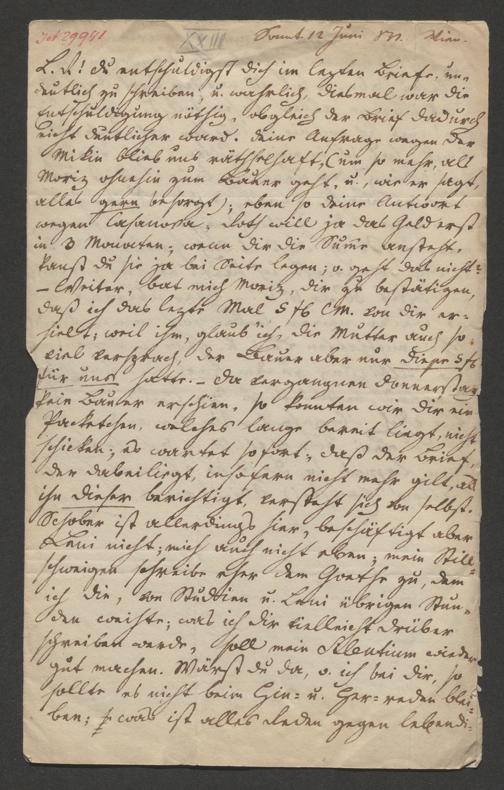 Jet 29991
XXIII
Sonnt. 12 Juni 831. Wien.
L. V! du entschuldigst dich im lezten Briefe, un-
deutlich zu schreiben, u. wahrlich, diesmal war die
Entschuldigung nöthig, obgleich der Brief dadurch
nicht deutlicher ward: deine Anfrage wegen der
Milin blieb uns räthselhaft, (um so mehr, als
Moriz ohnehin zum Bauer geht, u., wie er sagt,
alles gern besorgt); eben so deine Antwort
wegen Casanova. Loth will ja das Geld erst
in 3 Monaten; wenn dir die Sume ansteht,
kanst du sie ja bei Seite legen; o. geht das nicht?
– Weiter, bat mich Moriz, dir zu bestätigen,
daß ich das lezte Mal 5 f CM. von dir er-
hielt; weil ihm, glaub' ich, die Mutter auch so
viel versprach, der Bauer aber nur diese 5 f
für uns hatte. – Da vergangnen Donnerstag
kein Bauer erschien, so konnten wir dir ein
Packetchen, welches lange bereit liegt, nicht
schicken; es wartet sofort; daß der Brief,
der dabeiliegt, insofern nicht mehr gilt, als
ihn dieser berichtigt, versteht sich von selbst.
Schober ist allerdings hier, beschäftigt aber
Leni nicht; mich auch nicht eben; mein Still-
schweigen schreibe eher dem Goethe zu, dem
ich die, von Studien u. Leni übrigen Stun-
den weihte; was ich dir vielleicht drüber
schreiben werde, soll mein Silentium wieder
gut machen. Wärst du da, o. ich bei dir, so
sollte es nicht beim Hin- u. Her-reden blei-
ben; was ist alles Reden gegen lebendi-